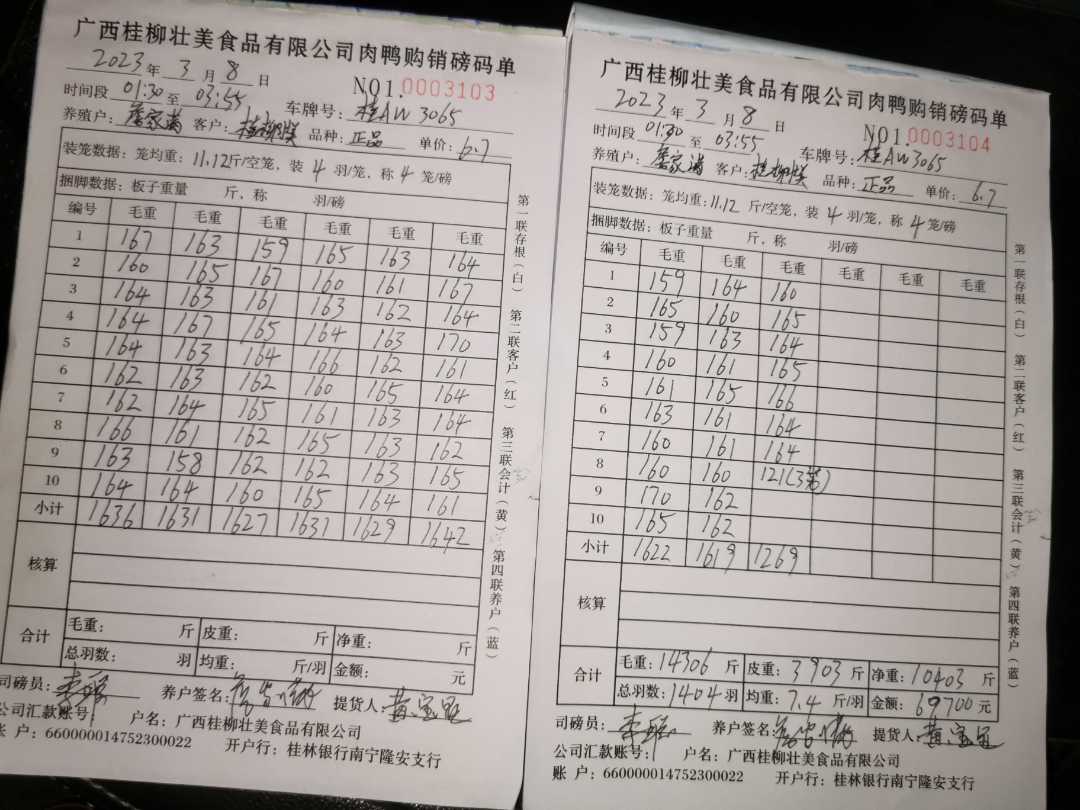 广西桂柳壮美食品有限公司肉鸭购销磅码单
2023年 3月 8日 NO1. 0003103
时间段 01:30 至 03:55 车牌号: 桂AW3065
养殖户: 客户: 品种: 正品 单价: 6.7
装笼数据: 笼均重: 11.12斤/空笼, 装 4 羽/笼, 称 4 笼/磅
捆脚数据: 板子重量 斤, 称 羽/磅
编号 毛重 毛重 毛重 毛重 毛重 毛重
1 167 163 159 165 163 164
2 160 165 167 160 161 167
3 164 163 161 163 162 164
4 164 167 165 164 163 170
5 164 163 164 166 162 161
6 162 163 162 160 165 164
7 162 164 165 161 163 164
8 166 161 162 165 163 162
9 163 158 162 162 163 165
10 164 164 160 165 164 161
小计 1636 1631 1627 1631 1629 1642
核算
合计 毛重: 斤 皮重: 斤 净重: 斤
总羽数: 羽 均重: 斤/羽 金额: 元
司磅员: 养户签名: 提货人:
公司汇款账号: 户名: 广西桂柳壮美食品有限公司
账 户: 660000014752300022 开户行: 桂林银行南宁隆安支行
第一联存根(白) 第二联客户(红) 第三联会计(黄) 第四联养户(蓝)
广西桂柳壮美食品有限公司肉鸭购销磅码单
2023年 3月 8日 NO1. 0003104
时间段 01:30 至 03:55 车牌号: 桂AW3065
养殖户: 客户: 品种: 正品 单价: 6.7
装笼数据: 笼均重: 11.12 斤/空笼, 装 4 羽/笼, 称 4 笼/磅
捆脚数据: 板子重量 斤, 称 羽/磅
编号 毛重 毛重 毛重 毛重 毛重 毛重
1 159 164 160
2 165 160 165
3 159 163 164
4 160 161 165
5 161 165 166
6 163 161 164
7 160 161 164
8 160 160 121(3笼)
9 170 162
10 165 162
小计 1622 1619 1269
核算
合计 毛重: 14306 斤 皮重: 3903 斤 净重: 10403 斤
总羽数: 1404 羽 均重: 7.4 斤/羽 金额: 69700 元
司磅员: 养户签名: 提货人:
公司汇款账号: 户名: 广西桂柳壮美食品有限公司
账 户: 660000014752300022 开户行: 桂林银行南宁隆安支行
第一联存根(白) 第二联客户(红) 第三联会计(黄) 第四联养户(蓝)